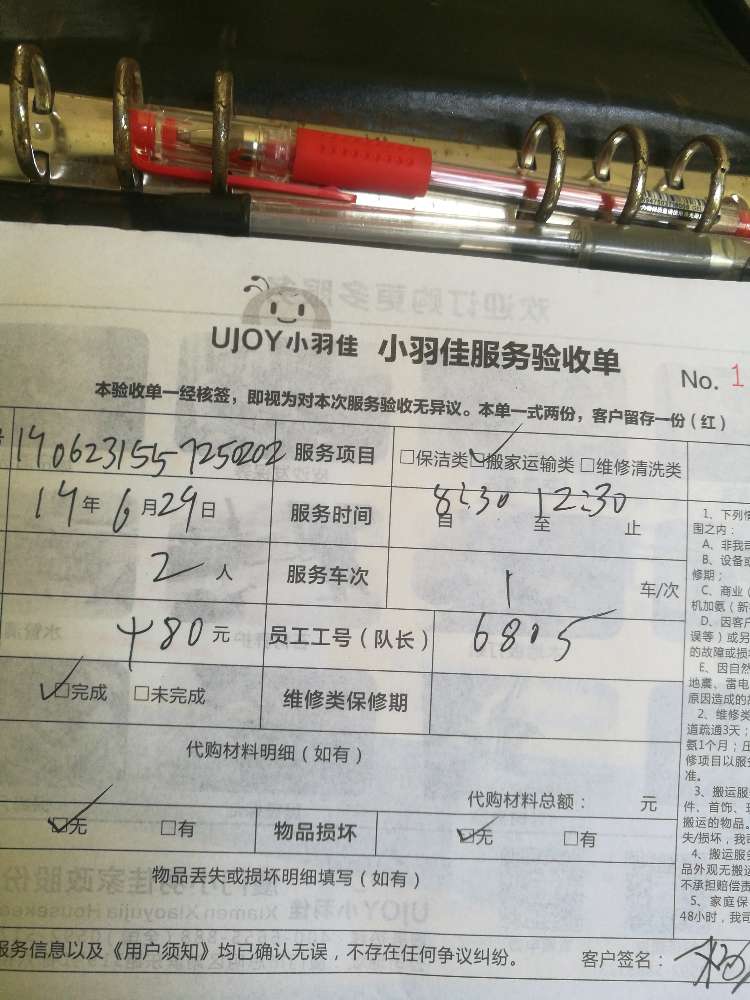 UJOY小羽佳 小羽佳服务验收单
No. 1
本验收单一经核签，即视为对本次服务验收无异议。本单一式两份，客户留存一份（红）
1906231557250202 服务项目 □保洁类 ☑搬家运输类 □维修清洗类
19年6月29日 服务时间 自8:30至12:30止
2人 服务车次 1 车/次
480元 员工工号（队长） 6805
☑完成 □未完成 维修类保修期
代购材料明细（如有）
代购材料总额： 元
☑无 □有 物品损坏 ☑无 □有
物品丢失或损坏明细填写（如有）
服务信息以及《用户须知》均已确认无误，不存在任何争议纠纷。 客户签名：
1、下列情
围之内：
A、非我司
B、设备或
修期；
C、商业（
机加氨（新
D、因客户
误等）或另
的故障或损
E、因自然
地震、雷电
原因造成的故
2、维修类
道疏通3天；
氨1个月；压
修项目以服务
准。
3、搬运服
件、首饰、珠
搬运的物品。
失/损坏，我司
4、搬运服务
品外观无搬运
不承担赔偿责
5、家庭保
48小时，我司